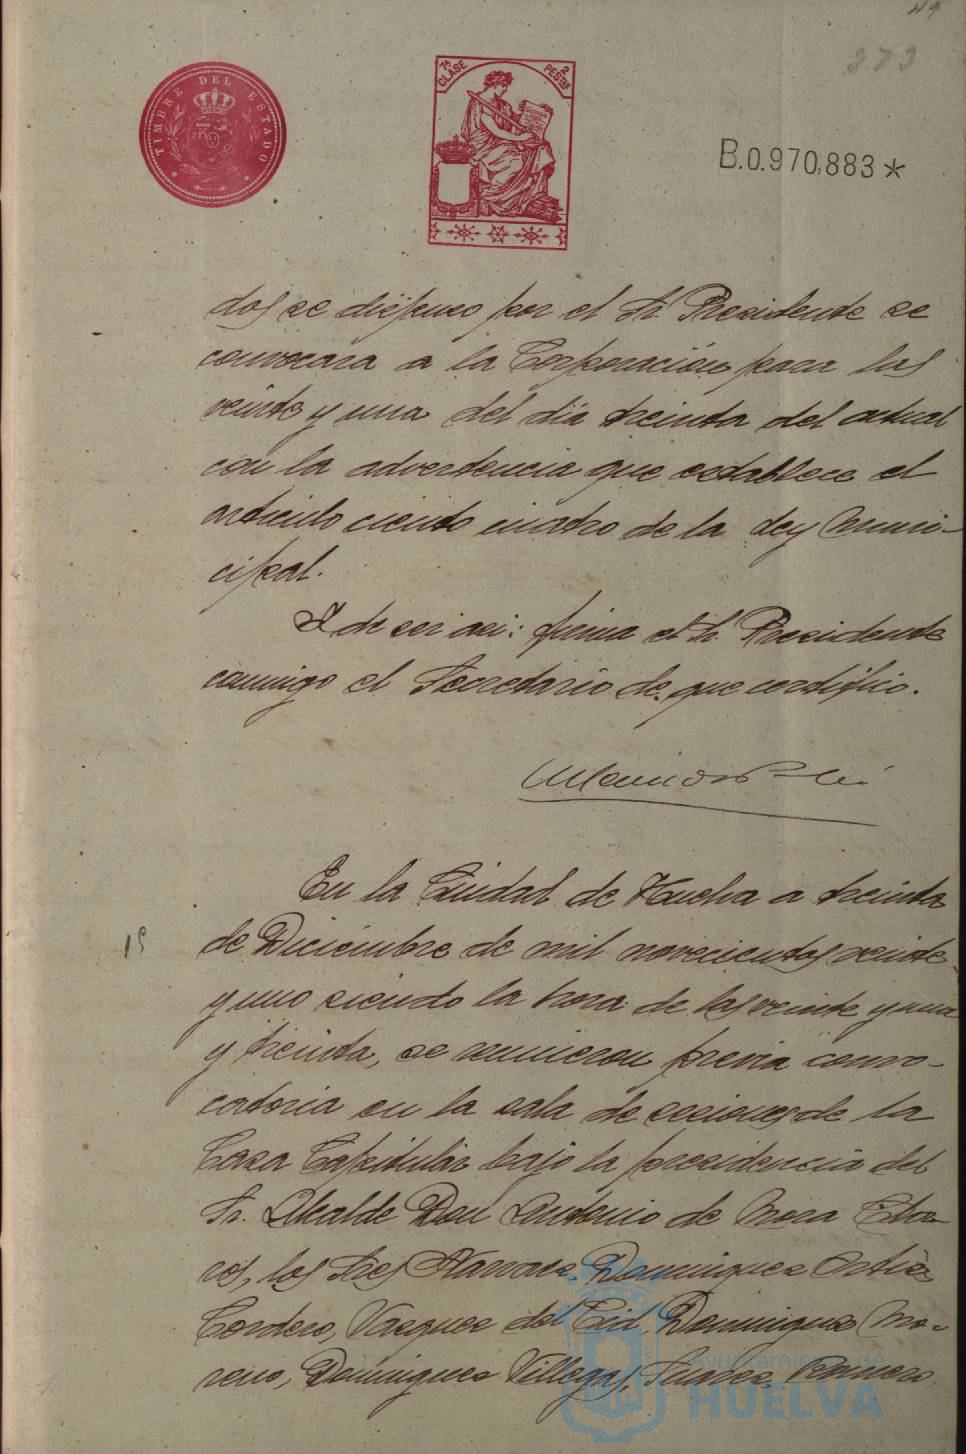 49
273
TIMBRE DEL ESTADO
7ª CLASE
2 PESTAS
B.0.970,883 *
dos se dispuso por el Sr. Presidente se
convocara a la Corporación para las
veinte y una del dia treinta del actual
con la advertencia que establece el
articulo ciento cuatro de la Ley Muni-
cipal.
Y de ser asi: firma el Sr. Presidente
conmigo el Secretario de que certifico.
En la Ciudad de Huelva a treinta
15
de Diciembre de mil novecientos veinte
y uno siendo la hora de las veinte y una
y treinta, se reunieron previa convo-
catoria en la sala de sesiones de la
Casa Capitular bajo la presidencia del
Sr. Alcalde Don Antonio de Mora Claro-
rés, los Sres Dominguez Ortiz
Cordero, Vazquez del Cid, Dominguez Mo-
reno, Dominguez Villegas, Suarez, Romero
Ayuntamiento de
HUELVA